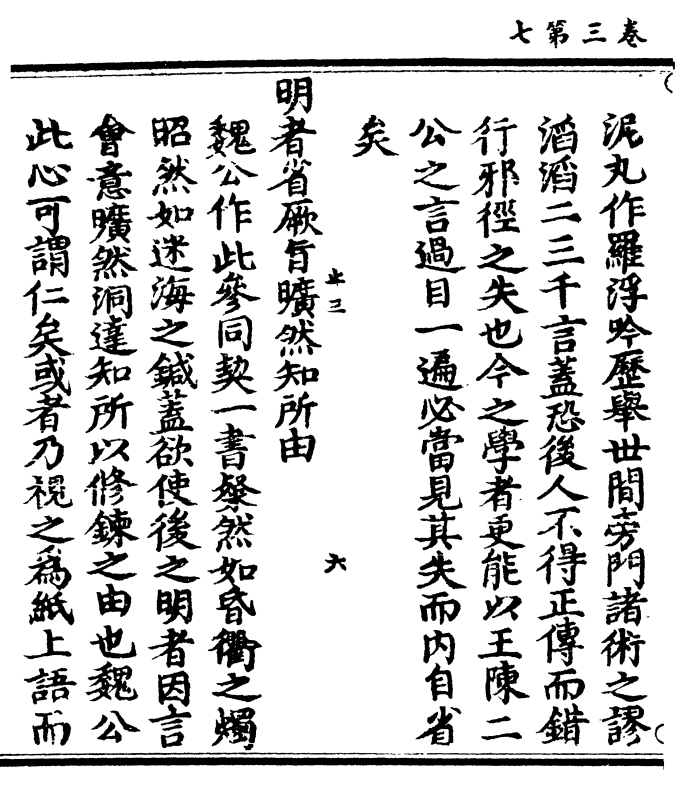 卷三第七
泥丸作羅浮吟歷舉世間旁門諸術之謬
滔滔二三千言蓋恐後人不得正傳而錯
行邪徑之失也今之學者更能以王陳二
公之言過目一遍必當見其失而內自省
矣
止三
六
明者省厥旨曠然知所由
魏公作此參同契一書粲然如昏衢之燭
昭然如迷海之鍼蓋欲使後之明者因言
會意曠然洞達知所以修鍊之由也魏公
此心可謂仁矣或者乃視之爲紙上語而